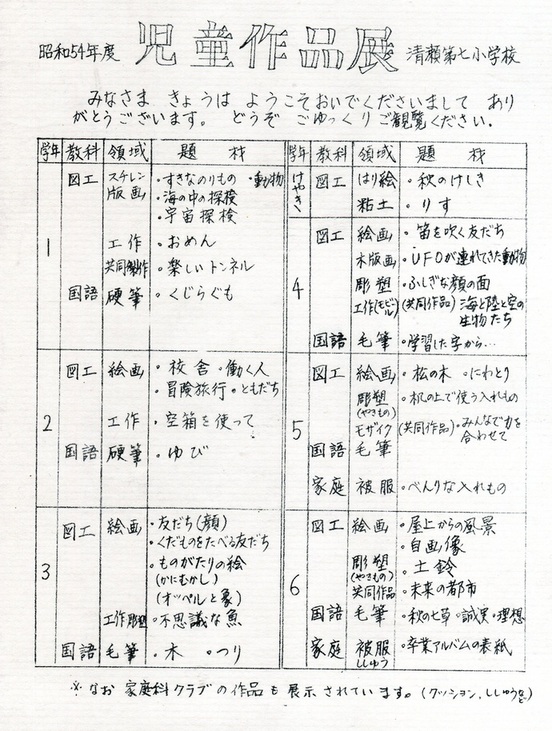 昭和54年度 児童作品展 清瀬第七小学校
みなさま きょうは ようこそおいでくださいまして あり
がとうございます。 どうぞ ごゆっくりご観覧ください。
学年 教科 領域 題材
1 図工 スチレン版画 ・すきなのりもの ・動物
・海の中の探検
・宇宙探検
工作 ・おめん
共同製作 ・楽しいトンネル
国語 硬筆 ・くじらぐも
2 図工 絵画 ・校舎 ・働く人
・冒険旅行 ・ともだち
工作 ・空箱を使って
国語 硬筆 ・ゆび
3 図工 絵画 ・友だち(顔)
・くだものをたべる友だち
・ものがたりの絵
(かにむかし)
(オッペルと象)
工作彫塑 ・不思議な魚
国語 毛筆 ・木 ・つり
学年 教科 領域 題材
けやき 図工 はり絵 ・秋のけしき
粘土 ・りす
4 図工 絵画 ・笛を吹く友だち
木版画 ・UFOが連れてきた動物
彫塑 ・ふしぎな顔の面
工作(モビール) (共同作品) 海と陸と空の
生物たち
国語 毛筆 ・学習した字から…
5 図工 絵画 ・松の木 ・にわとり
彫塑 ・机の上で使う入れもの
(やきもの)
モザイク (共同作品)・みんなで力を
合わせて
国語 毛筆
家庭 被服 ・べんりな入れもの
6 図工 絵画 ・屋上からの風景
・自画像
彫塑 ・土鈴
(やきもの)
共同作品 ・未来の都市
国語 毛筆 ・秋の七草 ・誠実 ・理想
家庭 被服 ・卒業アルバムの表紙
ししゅう
※なお 家庭科クラブの作品も展示されています。(クッション、ししゅうなど)